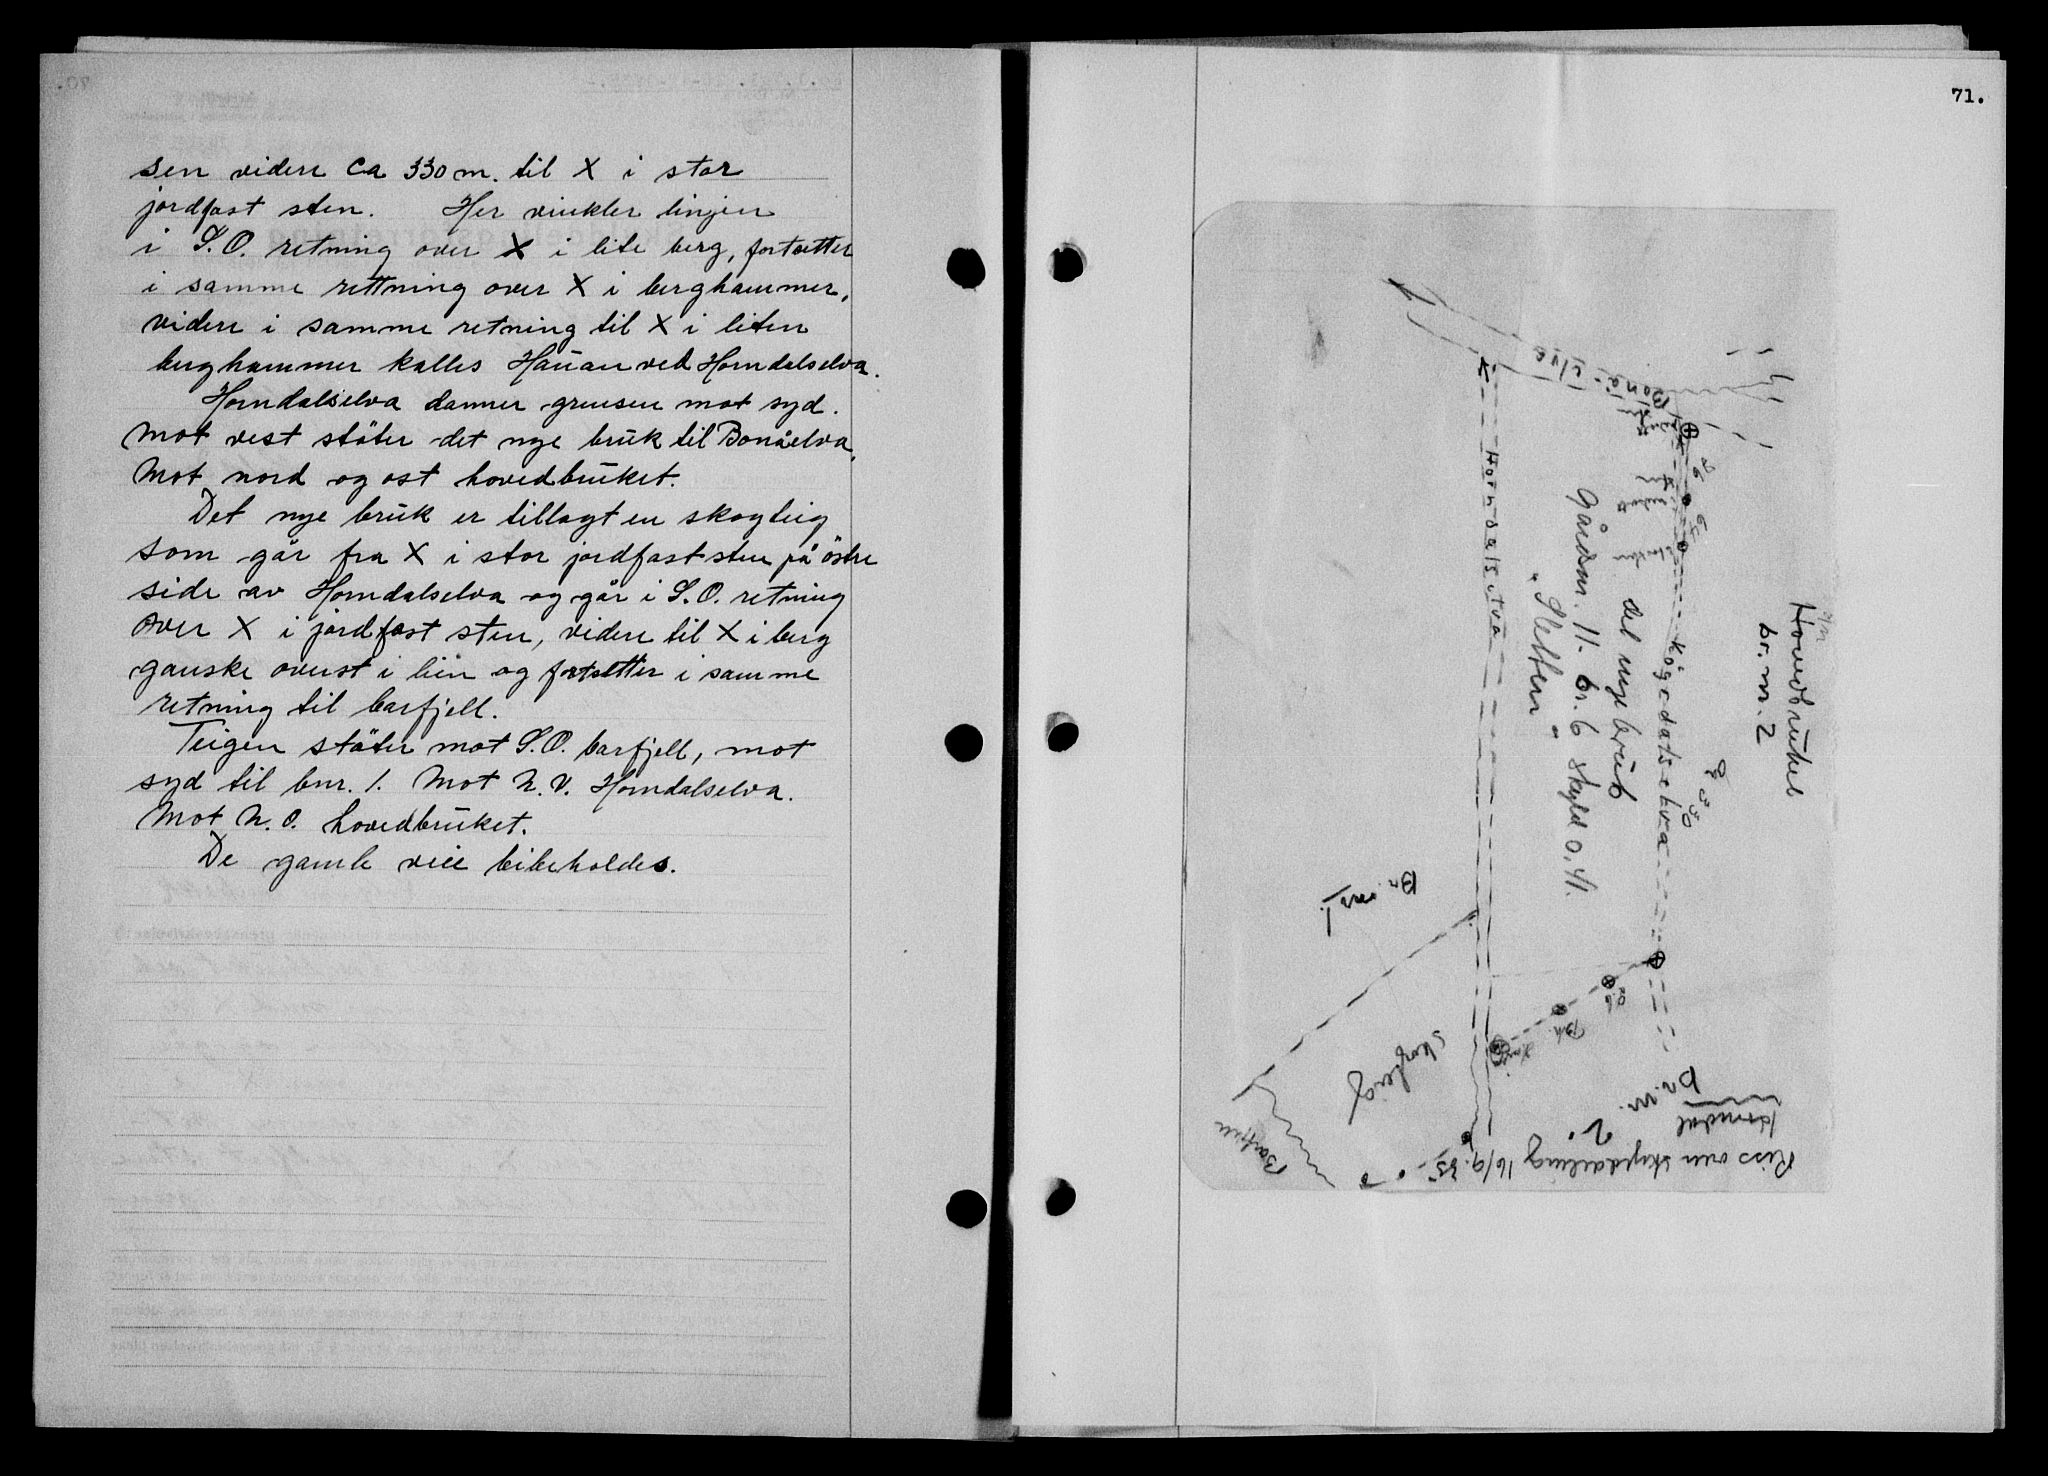 sen videre ca 330 m. til X i stor
jordfast sten. Her vinkler linjen
i S.O. retning over X i lite berg, fortsetter
i samme rettning over X i berghammer,
videre i samme retning til X i liten
berghammer kalles Hauan ved Horndalselva.
Horndalselva danner grensen mot syd.
Mot vest støter det nye bruk til Bonåelva,
Mot nord og ost hovedbruket.
Det nye bruk er tillagt en skogteig
som går fra X i stor jordfast sten på östre
side av Horndalselva og går i S.O. retning
over X i jordfast sten, videre til X i berg
ganske øverst i lien og fortsetter i samme
retning til barfjell.
Teigen stöter mot S.O. barfjell, mot
syd til bnr. 1. Mot N.V. Horndalselva.
Mot N.O. hovedbruket.
De gamle veie bibeholdes.
71.
Hovedbruket
br. nr. 2
Bonå-elva
Horndalselva
Kögedalselva
330
det nye bruk
Gårdsnr. 11. br. 6 skyld 0,41.
"Sletten"
Br. nr 1.
skogteig
Barfjell
Br. nr. 2.
Riss over skylddeling 16/9.35.
Horndal